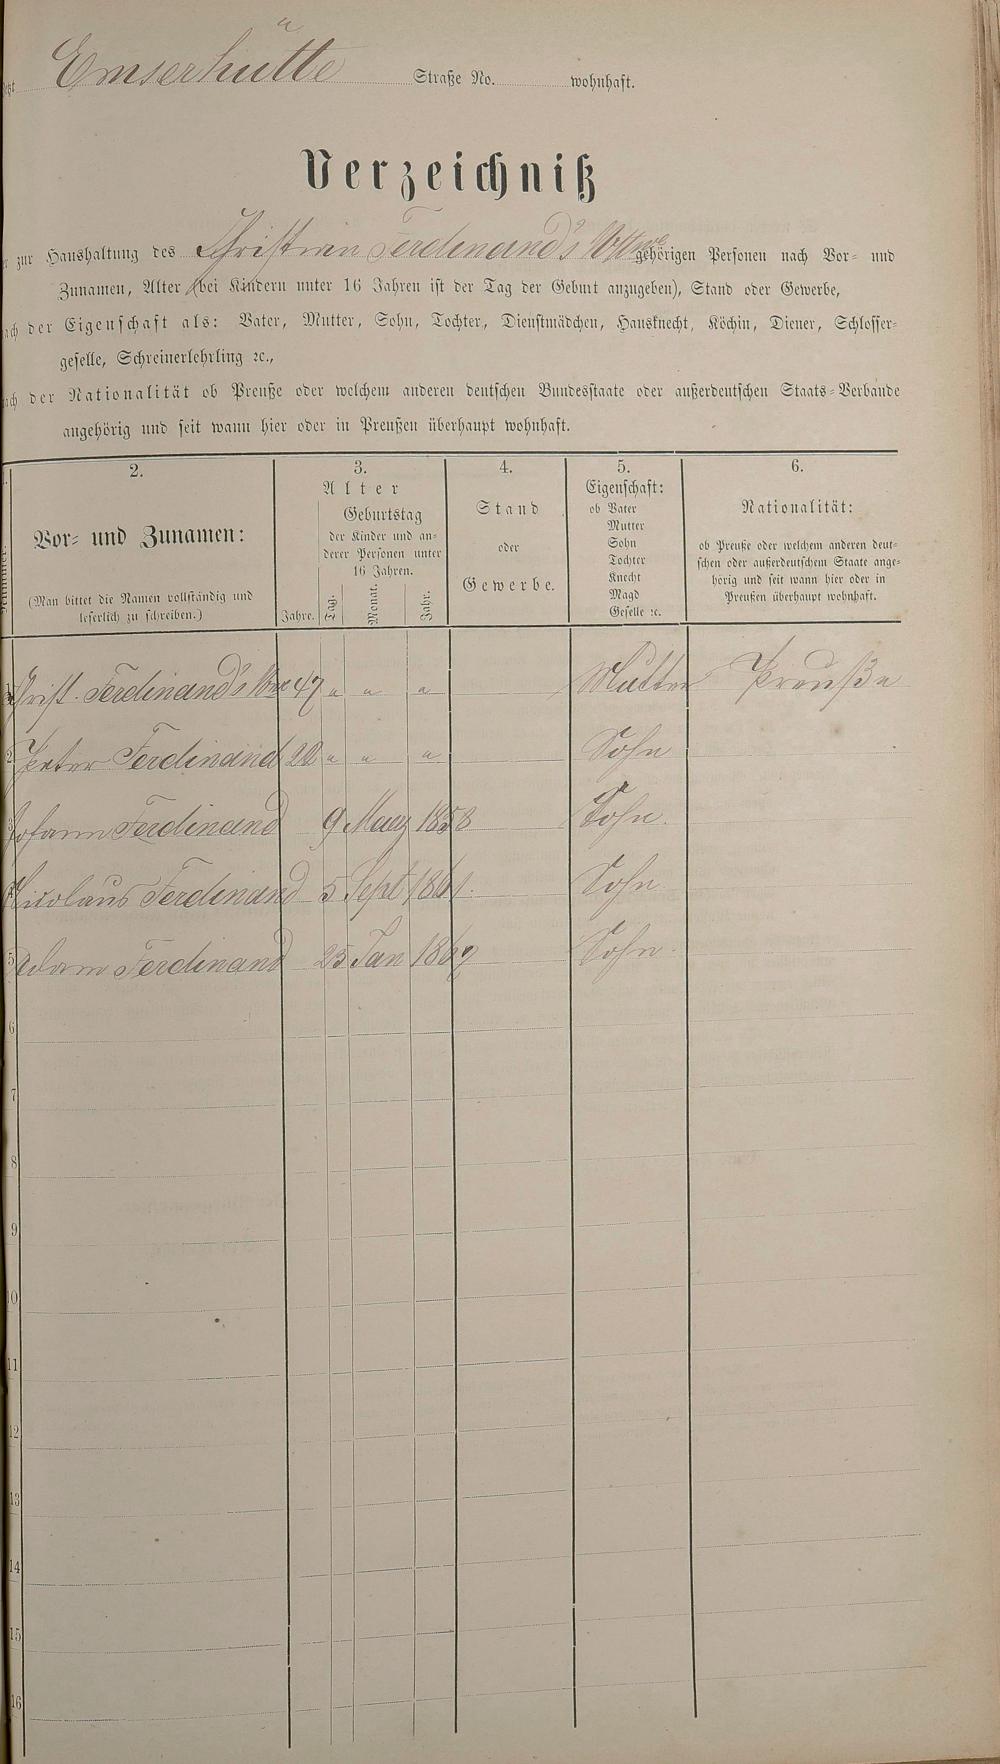 Emserhütte Straße No. wohnhaft.
Verzeichniß
zur Haushaltung des Christian Ferdinand's Wttwe gehörigen Personen nach Vor- und
Zunamen, Alter (bei Kindern unter 16 Jahren ist der Tag der Geburt anzugeben), Stand oder Gewerbe,
der Eigenschaft als: Vater, Mutter, Sohn, Tochter, Dienstmädchen, Hausknecht, Köchin, Diener, Schlosser-
geselle, Schreinerlehrling ꝛc.,
der Nationalität ob Preuße oder welchem anderen deutschen Bundesstaate oder außerdeutschen Staats-Verbande
angehörig und seit wann hier oder in Preußen überhaupt wohnhaft.
2.
Vor- und Zunamen:
(Man bittet die Namen vollständig und
leserlich zu schreiben.)
3.
Alter
Geburtstag
der Kinder und an-
derer Personen unter
16 Jahren.
Jahre. Tag. Monat. Jahr.
4.
Stand
oder
Gewerbe.
5.
Eigenschaft:
ob Vater
Mutter
Sohn
Tochter
Knecht
Magd
Geselle ꝛc.
6.
Nationalität:
ob Preuße oder welchem anderen deut-
schen oder außerdeutschem Staate ange-
hörig und seit wann hier oder in
Preußen überhaupt wohnhaft.
Christ. Ferdinand's Wwe 47 " " " Mutter Preuße
2 Peter Ferdinand " " " Sohn
3 Johann Ferdinand 9 Maerz 1858 Sohn.
Nikolaus Ferdinand 5 Sept 1861. Sohn
5 Adam Ferdinand 25 Jan 1869 Sohn.
6
7
8
9
10
11
12
13
14
15
16